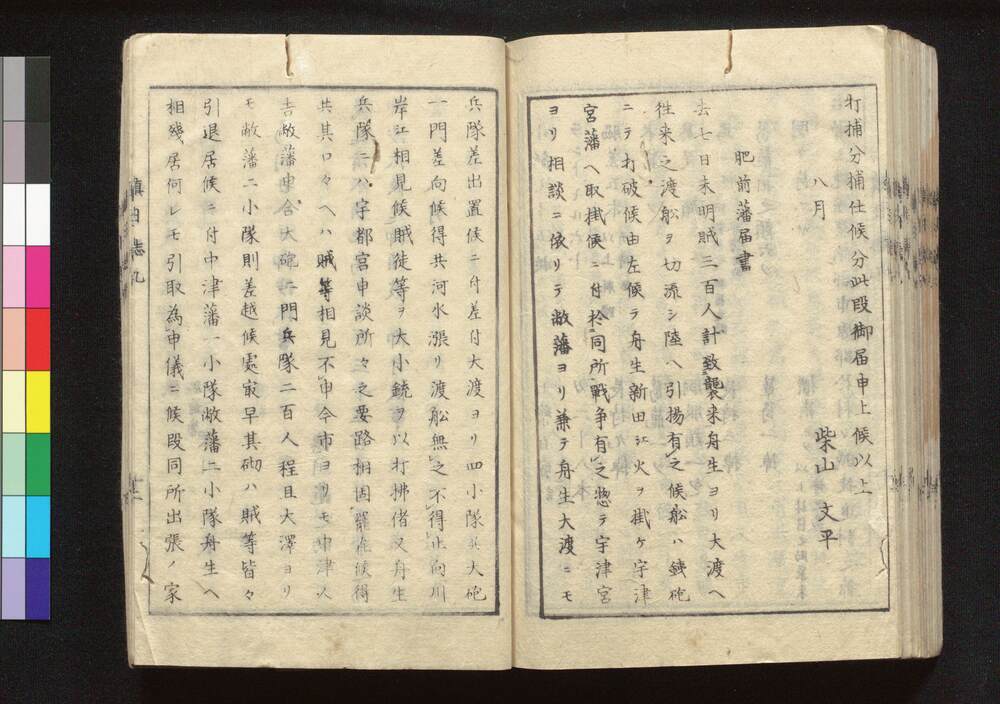 打捕分捕仕候分此段御届申上候以上
八月
柴山 文平
肥前藩届書
去七日未明賊三百人計致襲来舟生ヨリ大渡ヘ
往来之渡舩ヲ切流シ陸ヘ引揚有之候舩ハ鉄砲
ニテ打破候由左候テ舟生新田江火ヲ掛ケ宇津
宮藩ヘ取掛候ニ付於同所戦争有之惣テ宇津宮
ヨリ相談ニ依リテ敝藩ヨリ兼テ舟生大渡ニモ
兵隊差出置候ニ付差付大渡ヨリ四小隊共大砲
一門差向候得共河水漲リ渡舩無之不得止向川
岸江相見候賊徒等ヲ大小銃ヲ以打拂偖又舟生
兵隊ニハ宇都宮申談所々之要路相固罷在候得
共其口々ヘハ賊等相見不申今市ヨリモ中津以
敝藩申合大砲二門兵隊二百人程且大澤ヨリ
モ敝藩二小隊則差越候處寂早其砌ハ賊等皆々
引退居候ニ付中津藩一小隊敝藩二小隊舟生ヘ
相残居何レモ引取為申儀ニ候段同所出張ノ家